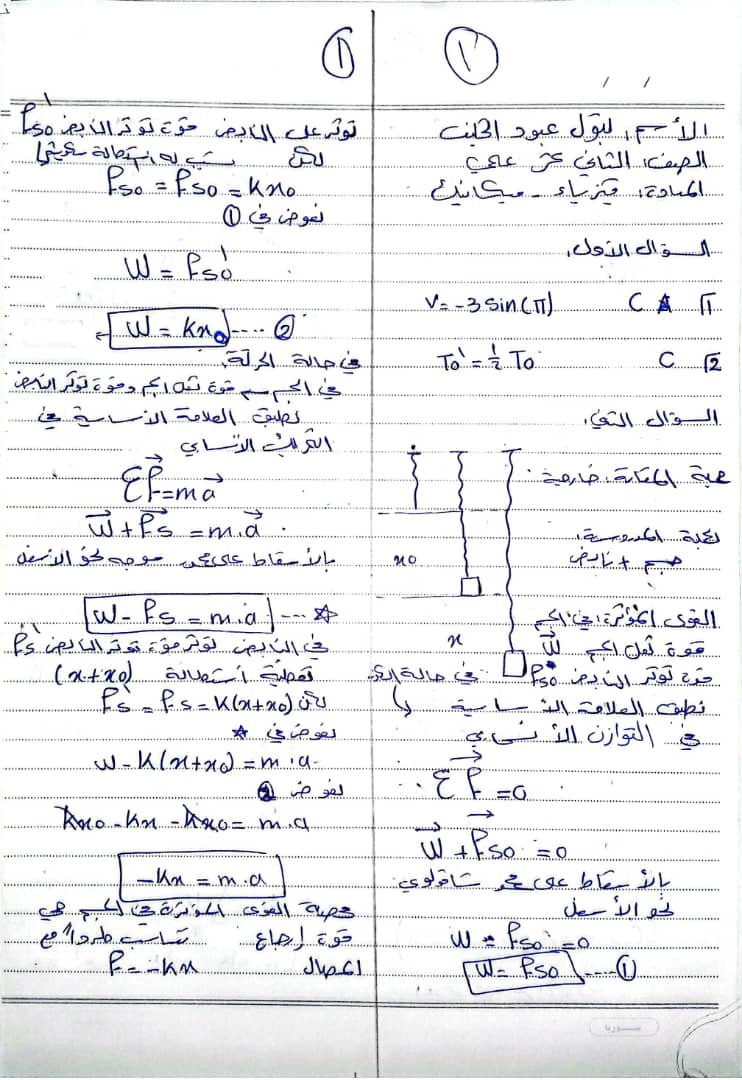 ١
/ /
الأسم: بتول عبود الحلبي
الصف: الثاني عشر علمي
المادة: فيزياء - ميكانيك
السؤال الأول:
1 C V = -3 sin(π)
2 C To' = 1/2 To
السؤال الثاني:
جملة المقارنة: خارجية
الجملة المدروسة:
جسم + نابض
x0
x
القوى المؤثرة: في الجسم
قوة ثقل الجسم W
قوة توتر النابض Fs0 في حالة
نطبق العلاقة الأساسية
في التوازن الأنسحابي
ΣF = 0
W + Fs0 = 0
بالأسقاط على محور شاقولي
نحو الأسفل
W - Fs0 = 0
W = Fs0 ---- ①
①
تؤثر على النابض قوة توتر النابض Fs0'
تسبب له استطالة سكونية لكن
Fs0' = Fs0 = Kx0
نعوض في ①
W = Fs0'
W = Kx0 ---- ②
في حالة الحركة:
في الجسم قوة ثقل الجسم وقوة توتر النابض
نطبق العلاقة الأساسية في
التحريك الأنسحابي
ΣF = ma
W + Fs = m.a
بالأسقاط على محور موجه نحو الأسفل
W - Fs = m.a ---- ☆
في النابض تؤثر قوة توتر النابض Fs'
تعطيه أستطالة (x+x0)
لكن Fs' = Fs = K(x+x0)
نعوض في ☆
w - K(x+x0) = m.a
نعوض ②
Kx0 - Kx - Kx0 = m.a
-Kx = m.a
محصلة القوى المؤثرة في الجسم هي
قوة إرجاع تناسب طرداً مع
F = -Kx
سوريا